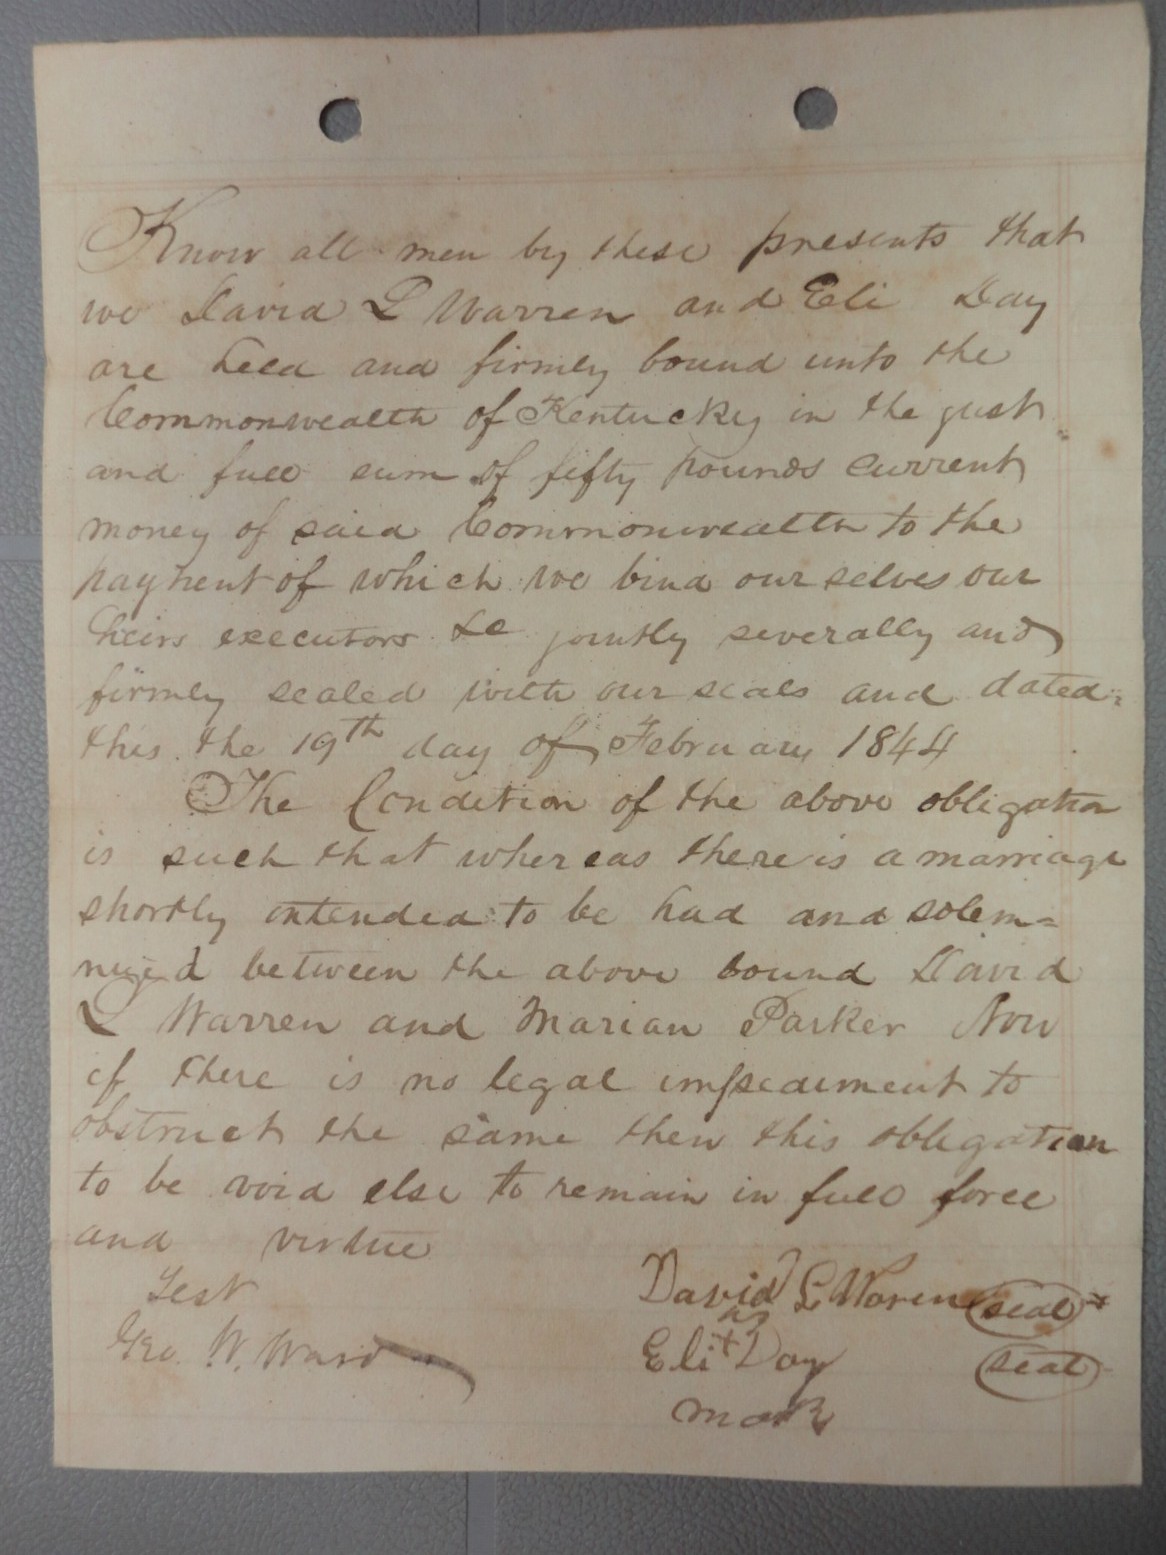 Know all men by these presents that
we David L Warren and Eli Day
are held and firmly bound unto the
Commonwealth of Kentucky in the just
and full sum of fifty pounds current
money of said Commonwealth to the
payment of which we bind ourselves our
heirs executors &c jointly severally and
firmly sealed with our seals and dated
this the 19th day of February 1844
The Condition of the above obligation
is such that whereas there is a marriage
shortly intended to be had and solem=
nized between the above bound David
L Warren and Marian Parker Now
if there is no legal impediment to
obstruct the same then this obligation
to be void else to remain in full force
and virtue
Test
Geo. W. Ward
David L Waren seal
his
Eli + Day seal
mark